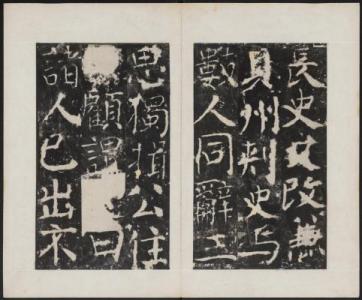 長史又改兼
貝州刺史与
數人同辭三
思獨揖公住
顧謂曰
諸人已出不